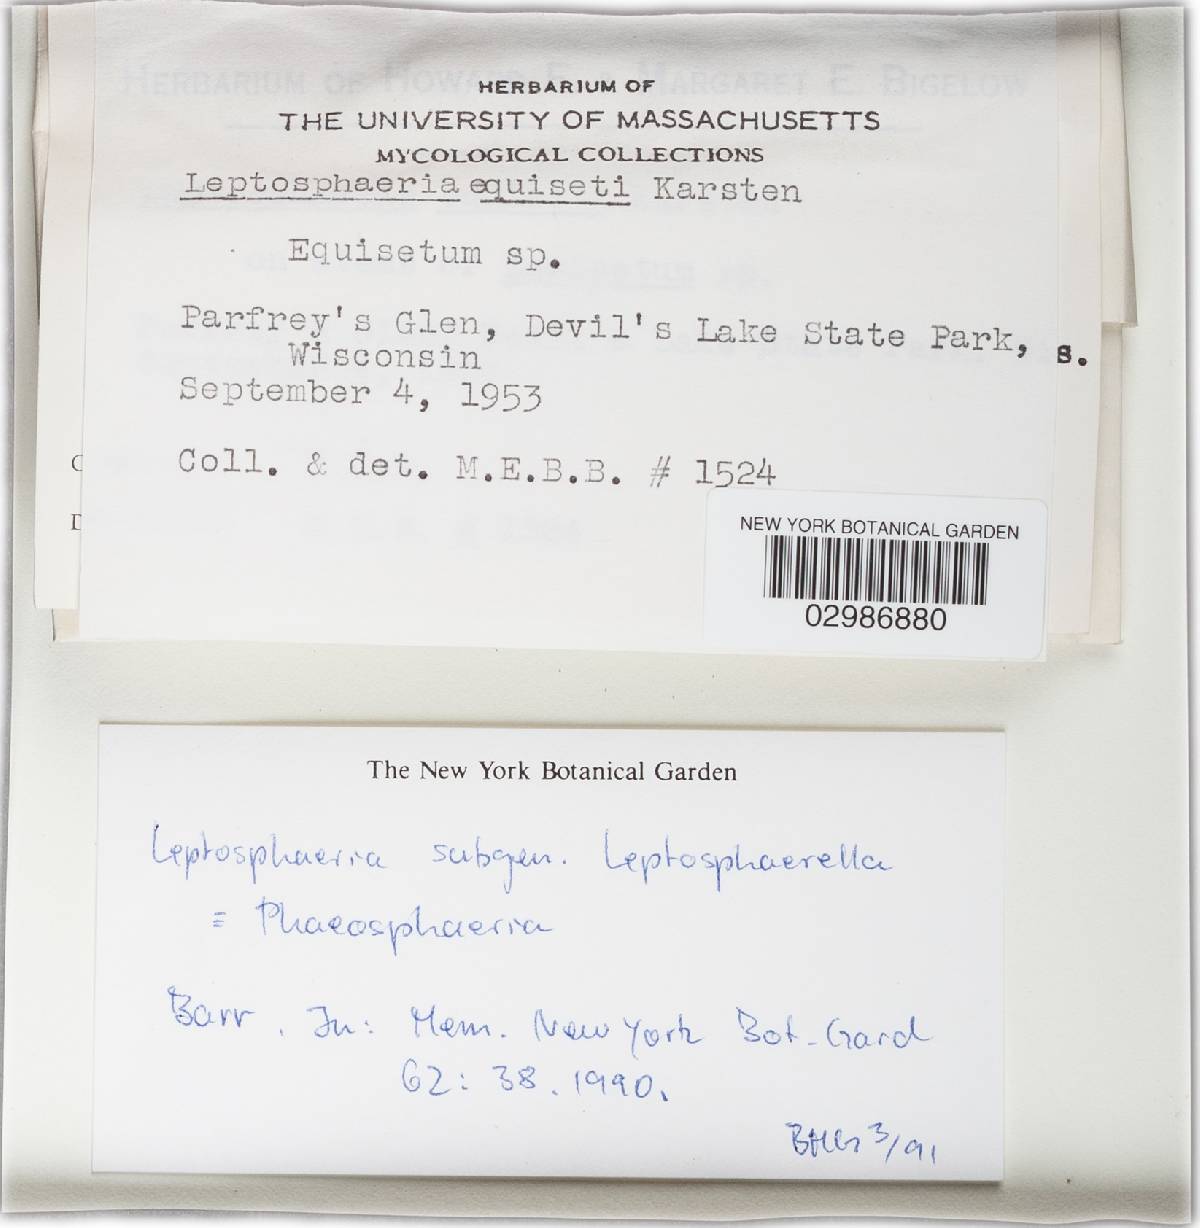 HERBARIUM OF HOWARD E. & MARGARET E. BIGELOW
HERBARIUM OF
THE UNIVERSITY OF MASSACHUSETTS
MYCOLOGICAL COLLECTIONS
Leptosphaeria equiseti Karsten
Equisetum sp.
Parfrey's Glen, Devil's Lake State Park, s.
Wisconsin
September 4, 1953
Coll. & det. M.E.B.B. # 1524
NEW YORK BOTANICAL GARDEN
02986880
The New York Botanical Garden
Leptosphaeria subgen. Leptosphaerella
= Phaeosphaeria
Barr, In: Mem. New York Bot. Gard
62: 38. 1990.
3/91